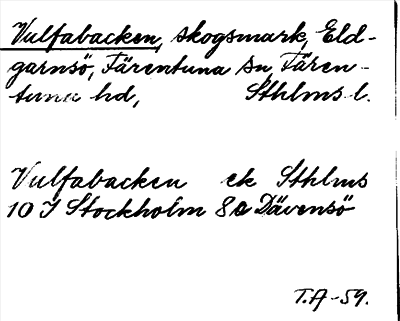 Vulfabacken, skogsmark, Eld-
garnsö, Färentuna sn, Fären-
tuna hd, Sthlms l.
Vulfabacken ek Sthlms
10 I Stockholm 8 a Dävensö
T.A-59.